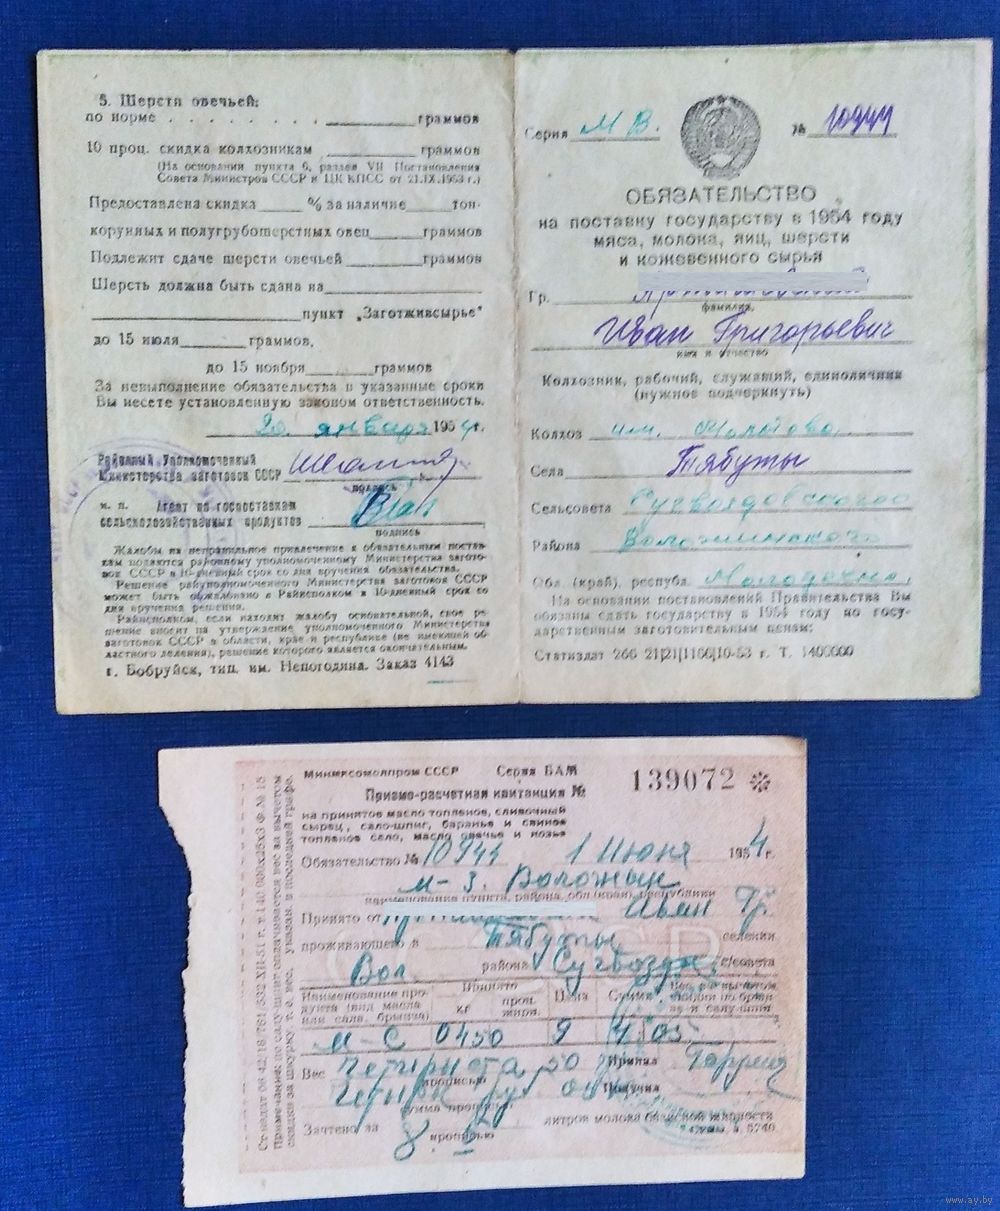 5. Шерсти овечьей:
по норме . . . . . . . . граммов
10 проц. скидка колхозникам граммов
(На основании пункта 6, раздел VII Постановления
Совета Министров СССР и ЦК КПСС от 21.IX.1953 г.)
Предоставлена скидка % за наличие тон-
корунных и полугрубошерстных овец граммов
Подлежит сдаче шерсти овечьей граммов
Шерсть должна быть сдана на
пункт „Заготживсырье"
до 15 июля граммов,
до 15 ноября граммов
За невыполнение обязательства в указанные сроки
Вы несете установленную законом ответственность.
20 января 1954 г.
Районный Уполномоченный
Министерства заготовок СССР
подпись
м. п. Агент по госпоставкам
сельскохозяйственных продуктов
подпись
Жалобы на неправильное привлечение к обязательным постав-
кам подаются районному уполномоченному Министерства загото-
вок СССР в 10-дневный срок со дня вручения обязательства.
Решение райуполномоченного Министерства заготовок СССР
может быть обжаловано в Райисполком в 10-дневный срок со
дня вручения решения.
Райисполком, если находит жалобу основательной, свое ре-
шение вносит на утверждение уполномоченного Министерства
заготовок СССР в области, крае и республике (не имеющей об-
ластного деления), решение которого является окончательным.
г. Бобруйск, тип. им. Непогодина. Заказ 4143
Серия М В. № 10944
ОБЯЗАТЕЛЬСТВО
на поставку государству в 1954 году
мяса, молока, яиц, шерсти
и кожевенного сырья
Гр.
фамилия,
Иван Григорьевич
имя и отчество
Колхозник, рабочий, служащий, единоличник
(нужное подчеркнуть)
Колхоз им. Молотова
Села Тябуты
Сельсовета
Района Воложинского
Обл. (край), республ. Молодечно,
На основании постановлений Правительства Вы
обязаны сдать государству в 1954 году по госу-
дарственным заготовительным ценам:
Статиздат 266 21|21|1166|10-53 г. Т. 1400000
Минмясомолпром СССР Серия БАМ 139072
Приемо-расчетная квитанция №
на принятое масло топленое, сливочный
сырец, сало-шпиг, баранье и свиное
топленое сало, масло овечье и козье
Обязательство № 10944 1 Июня 1954 г.
М-З. Воложын
наименование пункта, района, обл. (края), республики
Принято от Иван Гр.
проживающего в Тябуты селении
Вол района с/совета
Наименование про-
дукта (вид масла
или сала, брынза)
Принято
кг
проц.
жирн.
Цена
Сумма
Вес за вычетом
скидки по брын-
зе и салу-шпиг
М-С 0450 9 4.05
Вес Четыриста 50 гр Принял
прописью
Четыре руб 05 Получил
сумма прописью
Зачтено за литров молока базисной жирности
8. прописью
Примечание: по салу-шпиг оплачивается вес за вычетом
скидки за шкурку, т. е. вес, указан. в последней графе.
www.ay.by